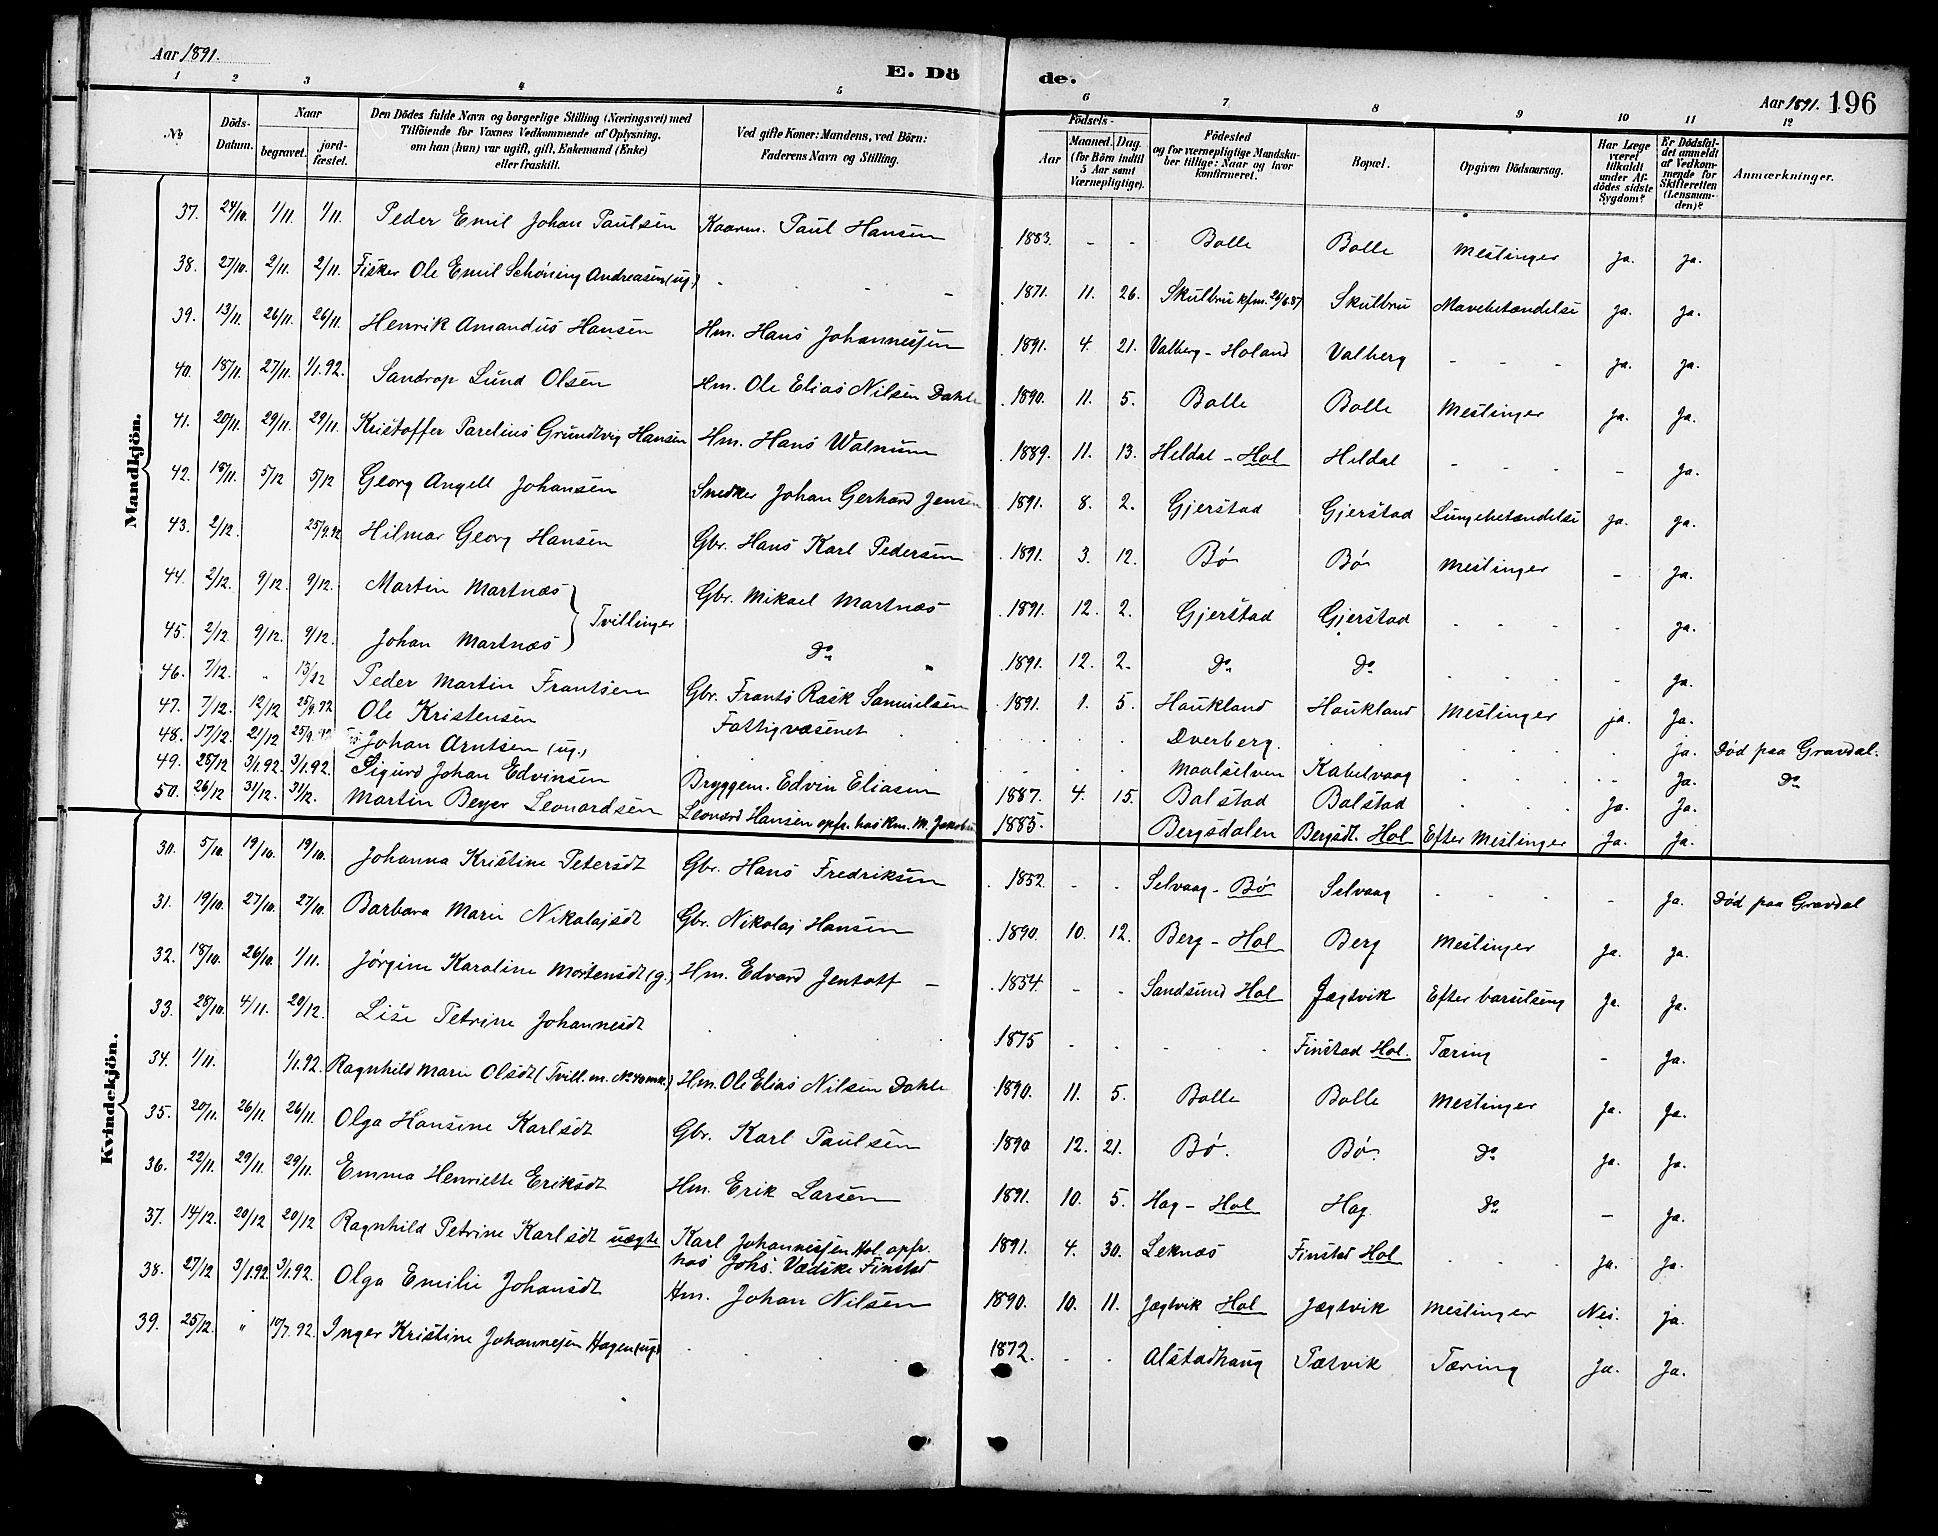 Aar 1891.
E. Dö
de.
Aar 1891. 196
1 2 3 4 5 6 7 8 9 10 11 12
No
Döds-Datum.
Naar begravet. jordfæstet.
Den Dödes fulde Navn og borgerlige Stilling (Næringsvei) med Tilföiende for Voxnes Vedkommende af Oplysning, om han (hun) var ugift, gift, Enkemand (Enke) eller fraskilt.
Ved gifte Koner: Mandens, ved Börn: Faderens Navn og Stilling.
Födsels-
Aar Maaned. Dag. (for Börn indtil 5 Aar samt Værnepligtige).
Födested og for værnepligtige Mandskaber tillige: Naar og hvor konfirmeret.
Bopæl.
Opgiven Dödsaarsag.
Har Læge været tilkaldt under Afdödes sidste Sygdom?
Er Dödsfaldet anmeldt af Vedkommende for Skifteretten (Lensmanden)?
Anmærkninger.
Mandkjön.
37. 24/10. 1/11. 1/11. Peder Emil Johan Paulsen Kaarm. Paul Hansen 1883. - - Bolle Bolle Meslinger ja. ja.
38. 27/10. 2/11. 2/11. Fisker Ole Emil Schöning Andreasen (ug.) - - - 1871. 11. 26. Skulbru kfm. 26/6 87 Skulbru Mavebetændelse ja. ja.
39. 13/11. 26/11. 26/11. Henrik Amandus Hansen Hm. Hans Johannessen 1891. 4. 21. Valberg - Holand Valberg - - - ja. ja.
40. 18/11. 27/11. 1/1.92. Sandrop Lund Olsen Hm. Ole Elias Nilsen Dahle 1890. 11. 5. Bolle Bolle Meslinger ja. ja.
41. 20/11. 29/11. 29/11. Kristoffer Parelius Grundtvig Hansen Hm. Hans Walnum 1889. 11. 13. Hildal - Hol Hildal - - - - ja.
42. 18/11. 5/12 5/12 Georg Angell Johansen Snedker Johan Gerhard Jensen 1891. 8. 2. Gjerstad Gjerstad Lungebetændelse ja. ja.
43. 2/12. 25/9.92 Hilmar Georg Hansen Gbr. Hans Karl Pedersen 1891. 3. 12. Bö Bö Meslinger - ja.
44. 2/12. 9/12. 9/12. Martin Martnæs } Tvillinger Gbr. Mikael Martnæs 1891. 12. 2. Gjerstad Gjerstad - - - - ja.
45. 2/12. 9/12. 9/12. Johan Martnæs Do 1891. 12. 2. Do Do - - - - ja.
46. 7/12. " 13/12 Peder Martin Frantsen Gbr. Frants Rask Samuelsen 1891. 1. 5. Haukland Haukland Meslinger ja. ja.
47. 7/12. 12/12 25/9.92 Ole Kristensen Fattigvæsenet . . . Dverberg. . . . . ja. Död paa Gravdal.
48. 17/12. 21/12 Johan Arntsen (ug.) . . . Maalselven Kabelvaag . . . - ja. Do
49. 25/12 3/1.92. 3/1.92. Sigurd Johan Edvinsen Bryggem. Edvin Eliasen 1887. 4. 15. Balstad Balstad . . . ja. ja.
50. 26/12 31/12. 31/12. Martin Beyer Leonardsen Leonard Hansen opfr. hos Km. M. Jakobsen 1885. Bergsdalen Bergsdl. Hol Efter Meslinger ja. ja.
Kvindekjön.
30. 5/10 19/10. 19/10. Johanna Kristine Petersdt Gbr. Hans Fredriksen 1852. - - Selvaag - Bö Selvaag - - - - ja. Död paa Gravdal
31. 19/10. 27/10. 27/10. Barbara Marie Nikolajsdt Gbr. Nikolaj Hansen 1890. 10. 12. Berg - Hol Berg Meslinger ja. ja.
32. 18/10. 26/10 1/11. Jørgine Karoline Mortensdt (g.) Hm. Edvard Jentoft - 1854. - - Sandsund Hol Jægtvik Efter barulseng ja. ja.
33. 28/10. 4/11. 20/12. Lise Petrine Johannesdt . . 1875 - - - - Finstad Hol. Tæring - ja.
34. 1/11. 1/1.92. Ragnhild Marie Olsdt (Tvill. m. No 40 mk.) Hm. Ole Elias Nilsen Dahle 1890. 11. 5. Bolle Bolle Meslinger ja. ja.
35. 20/11. 26/11. 26/11. Olga Hansine Karlsdt Gbr. Karl Paulsen 1890 12. 21. Bö. Bö. Do ja. ja.
36. 22/11. 29/11. 29/11. Emma Henriette Eriksdt Hm. Erik Larsen 1891. 10. 5. Hag - Hol Hag. Do - ja.
37. 14/12. 20/12 20/12 Ragnhild Petrine Karlsdt uægte Karl Johannessen Hol opfr. hos Johs. Vædske Finstad 1891. 4. 30. Leknæs Finstad Hol . . . ja. ja.
38. 27/12 3/1.92. 3/1.92. Olga Emilie Johansdt Hm. Johan Nilsen 1890. 10. 11. Jægtvik Hol Jægtvik Meslinger Nei. ja.
39. 25/12. " 10/7.92. Inger Kristine Johannesen Hagen (ug) . . . 1872. - - Alstadhaug Petvik Tæring Ja. Ja.